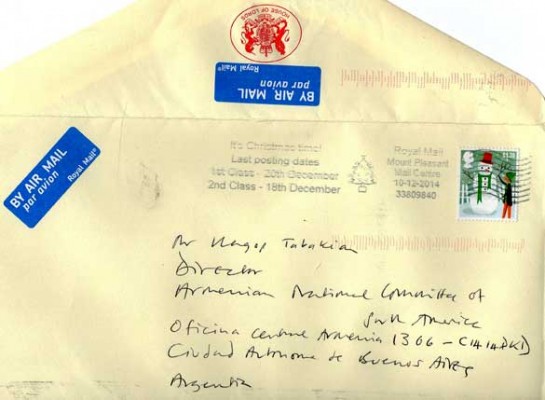 HOUSE OF LORDS
Royal Mail®
BY AIR MAIL
par avion
BY AIR MAIL
par avion
Royal Mail®
It's Christmas time!
Last posting dates
1st Class - 20th December
2nd Class - 18th December
Royal Mail
Mount Pleasant
Mail Centre
10-12-2014
33809840
Mr Hagop Tabakian
Director
Armenian National Committee of
South America
Oficina Central Armenia 1306 - C1414DKD
Ciudad Autonoma de Buenos Aires
Argentina